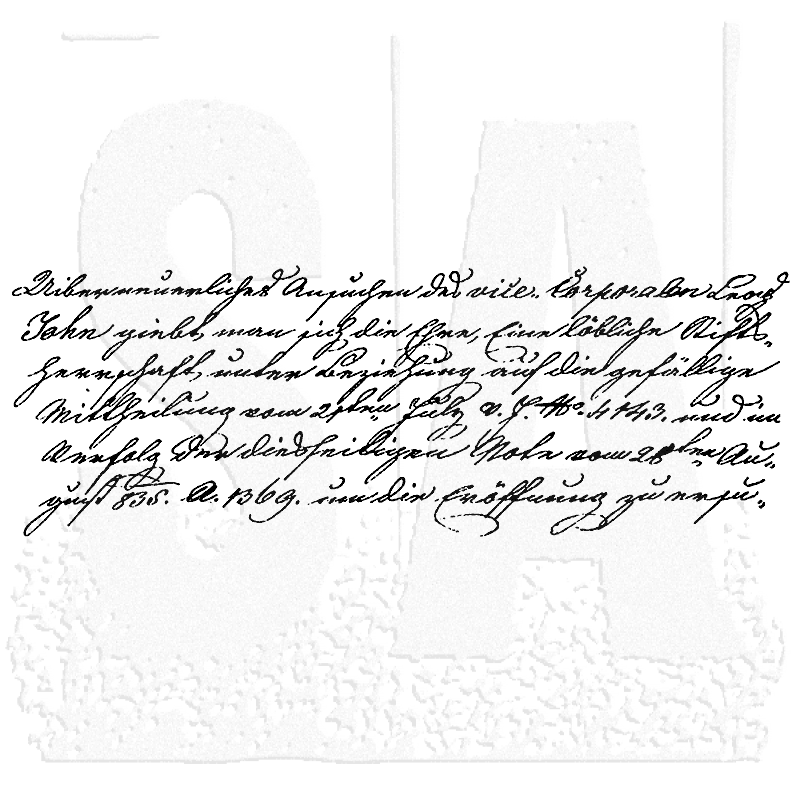 Uiber neuerliches Ansuchen des vice. Corporalen Leond
John giebt man sich die Ehre, Eine löbliche Stifts„
herrschaft, unter Beziehung auf die gefällige
Mittheilung vom 21ten July v. J. No. 4143. und im
Verfolg der diesseitigen Note vom 28ten Au„
gust 835. A. 1369. um die Eröffnung zu ersu„
SA